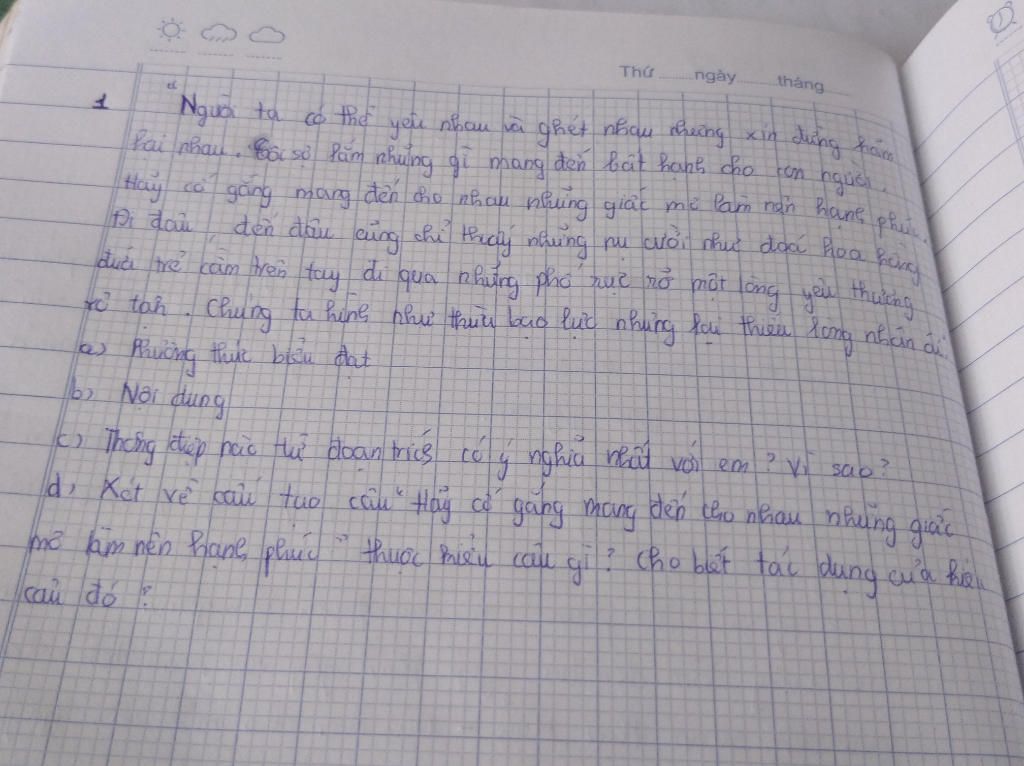 Thứ ngày tháng
1 "Người ta có thể yêu nhau và ghét nhau nhưng xin đừng hãm
hại nhau. Tôi sợ lắm những gì mang đến bất hạnh cho con người.
Hãy cố gắng mang đến cho nhau những giấc mơ làm nên hạnh phúc.
Đi đâu, đến đâu cũng chỉ thấy những nụ cười như đoá hoa hồng
đứa trẻ cầm trên tay đi qua những phố rực rỡ một lòng yêu thương
vô tận. Chúng ta hình như thừa bạo lực nhưng lại thiếu lòng nhân ái.
a) Phương thức biểu đạt
b) Nội dung
c) Thông điệp nào từ đoạn trích có ý nghĩa nhất với em? Vì sao?
d) Xét về cấu tạo câu "Hãy cố gắng mang đến cho nhau những giấc
mơ làm nên hạnh phúc" thuộc kiểu câu gì? Cho biết tác dụng của kiểu
câu đó?